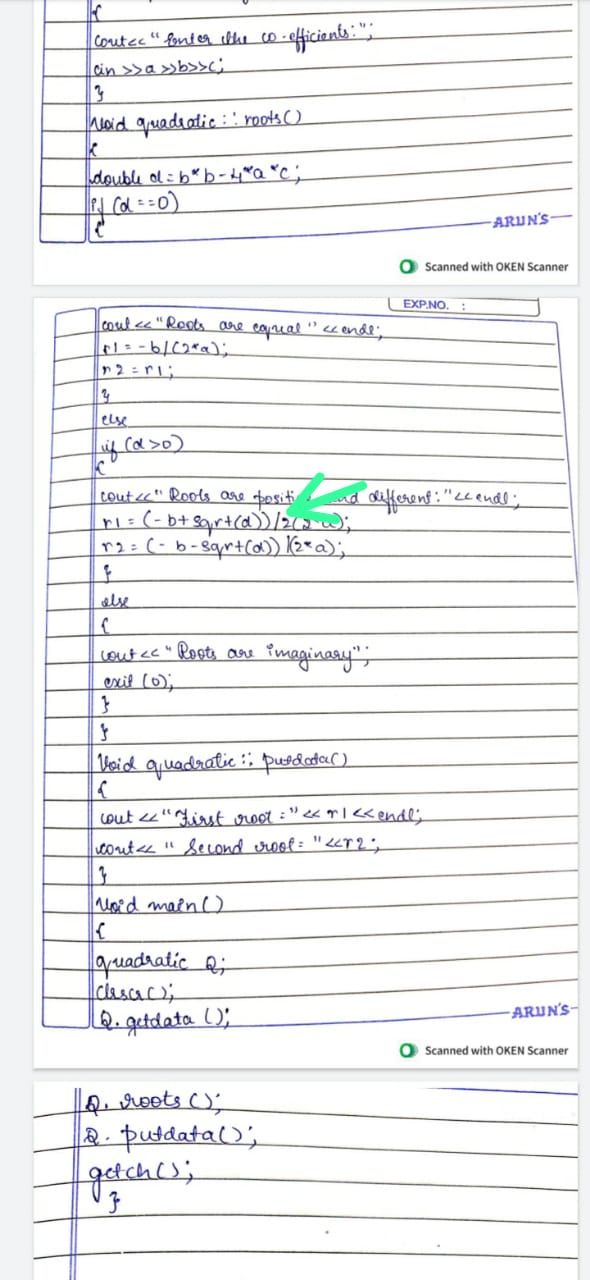 {
cout<<"Enter the co-efficients:";
cin >>a >>b>>c;
}
Void quadratic :: roots()
{
double d=b*b-4*a*c;
if (d==0)
{
ARUN'S
Scanned with OKEN Scanner
EXP.NO. :
cout<<"Roots are equal"<<endl;
r1=-b/(2*a);
r2=r1;
}
else
if (d>0)
{
cout<<"Roots are different:"<<endl;
r1=(-b+sqrt(d))/2(2
r2=(-b-sqrt(d))/(2*a);
}
else
{
cout<<"Roots are imaginary";
exit(0);
}
}
Void quadratic :: putdata()
{
cout <<"First root="<< r1<<endl;
cout<< "Second root= "<<r2;
}
Void main()
{
quadratic Q;
clrscr();
Q.getdata ();
ARUN'S
Scanned with OKEN Scanner
Q. roots();
Q. putdata();
getch();
}